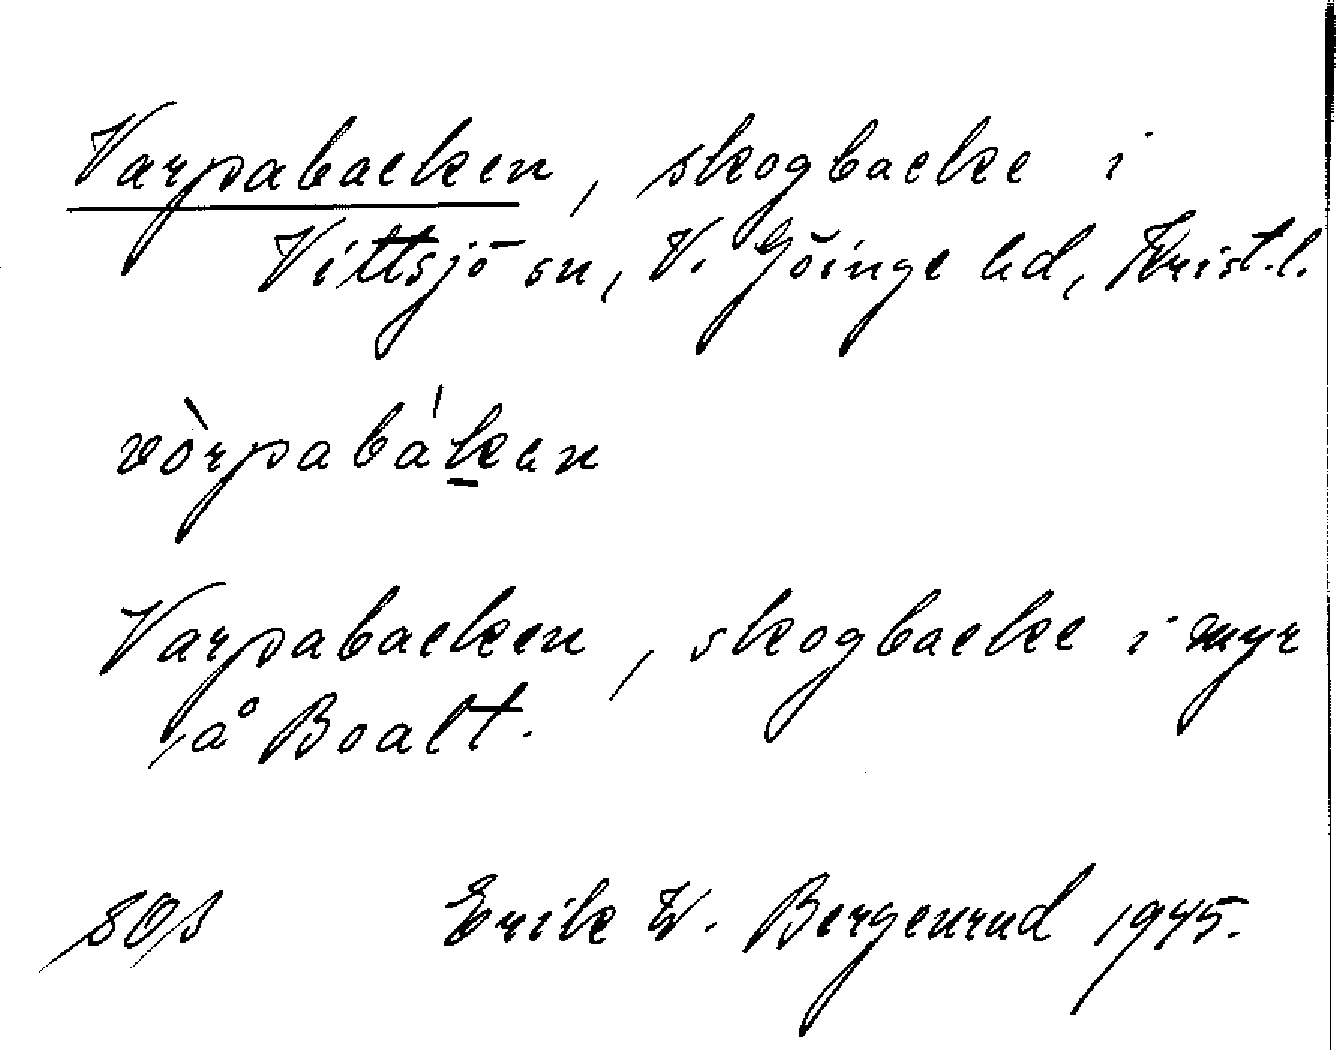 Varpabacken, skogbacke i
Vittsjö sn, V. Göinge hd, Krist. l.
vòrpabákan
Varpabacken, skogbacke i myr
å Boalt.
SOS Erik W. Bergenrud 1945.